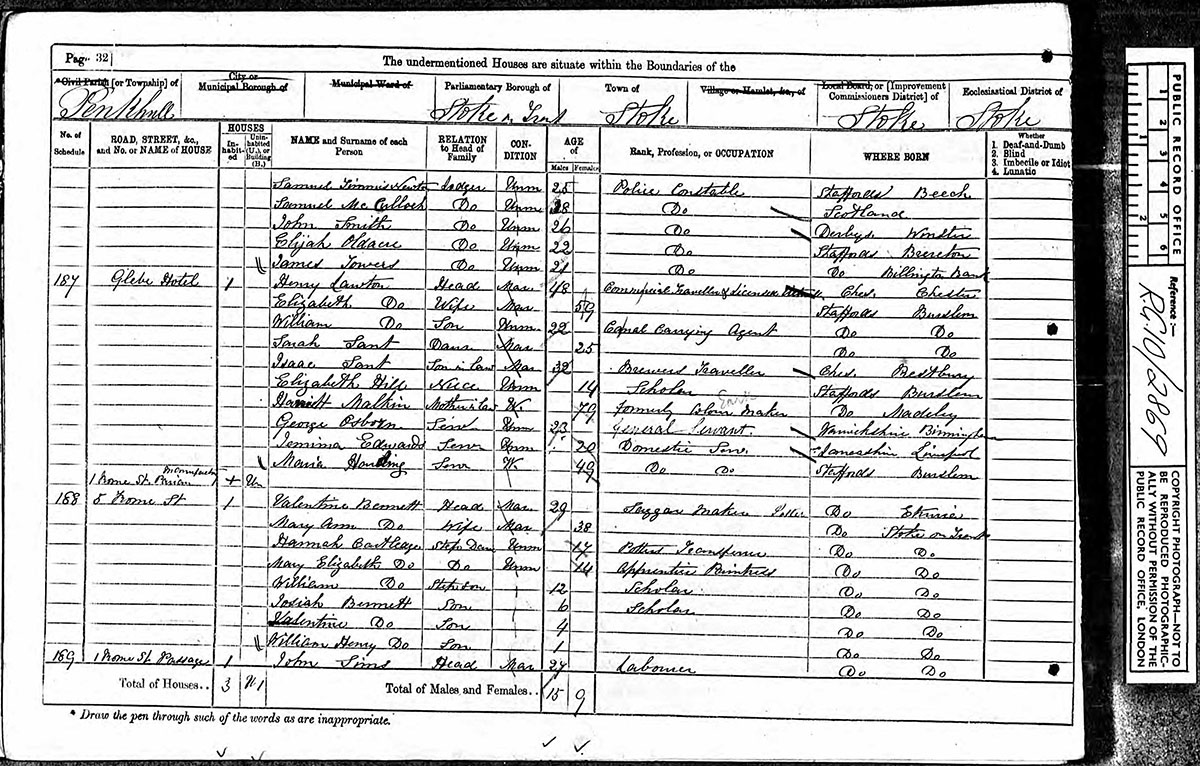 Page 32
The undermentioned Houses are situate within the Boundaries of the
*Civil Parish [or Township] of
City or Municipal Borough of
Municipal Ward of
Parliamentary Borough of
Town of
Village or Hamlet, &c., of
Local Board, or [Improvement Commissioners District] of
Ecclesiastical District of
Penkhull Stoke on Trent Stoke Stoke Stoke
No. of Schedule
ROAD, STREET, &c., and No. or NAME of HOUSE
HOUSES
Inhabited
Uninhabited (U.), or Building (B.)
NAME and Surname of each Person
RELATION to Head of Family
CONDITION
AGE of
Males Females
Rank, Profession, or OCCUPATION
WHERE BORN
Whether
1. Deaf-and-Dumb
2. Blind
3. Imbecile or Idiot
4. Lunatic
Samuel Timmis Newton Lodger Unm 25 Police Constable Staffords Beech
Samuel McCulloch Do Unm 28 Do Scotland
John Smith Do Unm 26 Do Derbys
Elijah Oldacre Do Unm 22 Do Staffords Brereton
James Towers Do Unm 21 Do Do Billington Bank
187 Glebe Hotel 1 Henry Lawton Head Mar 48 Commercial Traveller & Licensed Ches. Chester
Elizabeth Do Wife Mar 59 Staffords Burslem
William Do Son Unm 22 Canal Carrying Agent Do Do
Sarah Sant Daur Mar 25 Do Do
Isaac Sant Son in law Mar 32 Brewers Traveller Ches.
Elizabeth Hill Niece Unm 14 Scholar Staffords Burslem
Harriett Malkin Mother in law W. 79 formerly Maker Do Madeley
George Osborn Serv Unm 23 General Servant Warwickshire Birmingham
Jemima Edwards Serv Unm 20 Domestic Serv. Lancashire Liverpool
Maria Harding Serv W 49 Do Do Staffords Burslem
1 Rome St. + Un
168 5 Rome St 1 Valentine Bennett Head Mar 29 Saggar Maker Potter Do Etruria
Mary Ann Do Wife Mar 38 Do Stoke on Trent
Hannah Cartledge Step Daur Unm 17 Potters Transferrer Do Do
Mary Elizabeth Do Do Unm 14 Apprentice Do Do
William Do Stepson 12 Scholar Do Do
Josiah Bennett Son 6 Scholar Do Do
Valentine Do Son 4 Do Do
William Henry Do Son 1 Do Do
169 1 Rome St. Passage 1 John Sims Head Mar 27 Labourer Do Do
Total of Houses.. 3 1 Total of Males and Females.. 15 9
* Draw the pen through such of the words as are inappropriate.
PUBLIC RECORD OFFICE
1 2 3 4 5 6
1 2
Reference :—
RG10/2869
COPYRIGHT PHOTOGRAPH—NOT TO BE REPRODUCED PHOTOGRAPHICALLY WITHOUT PERMISSION OF THE PUBLIC RECORD OFFICE, LONDON